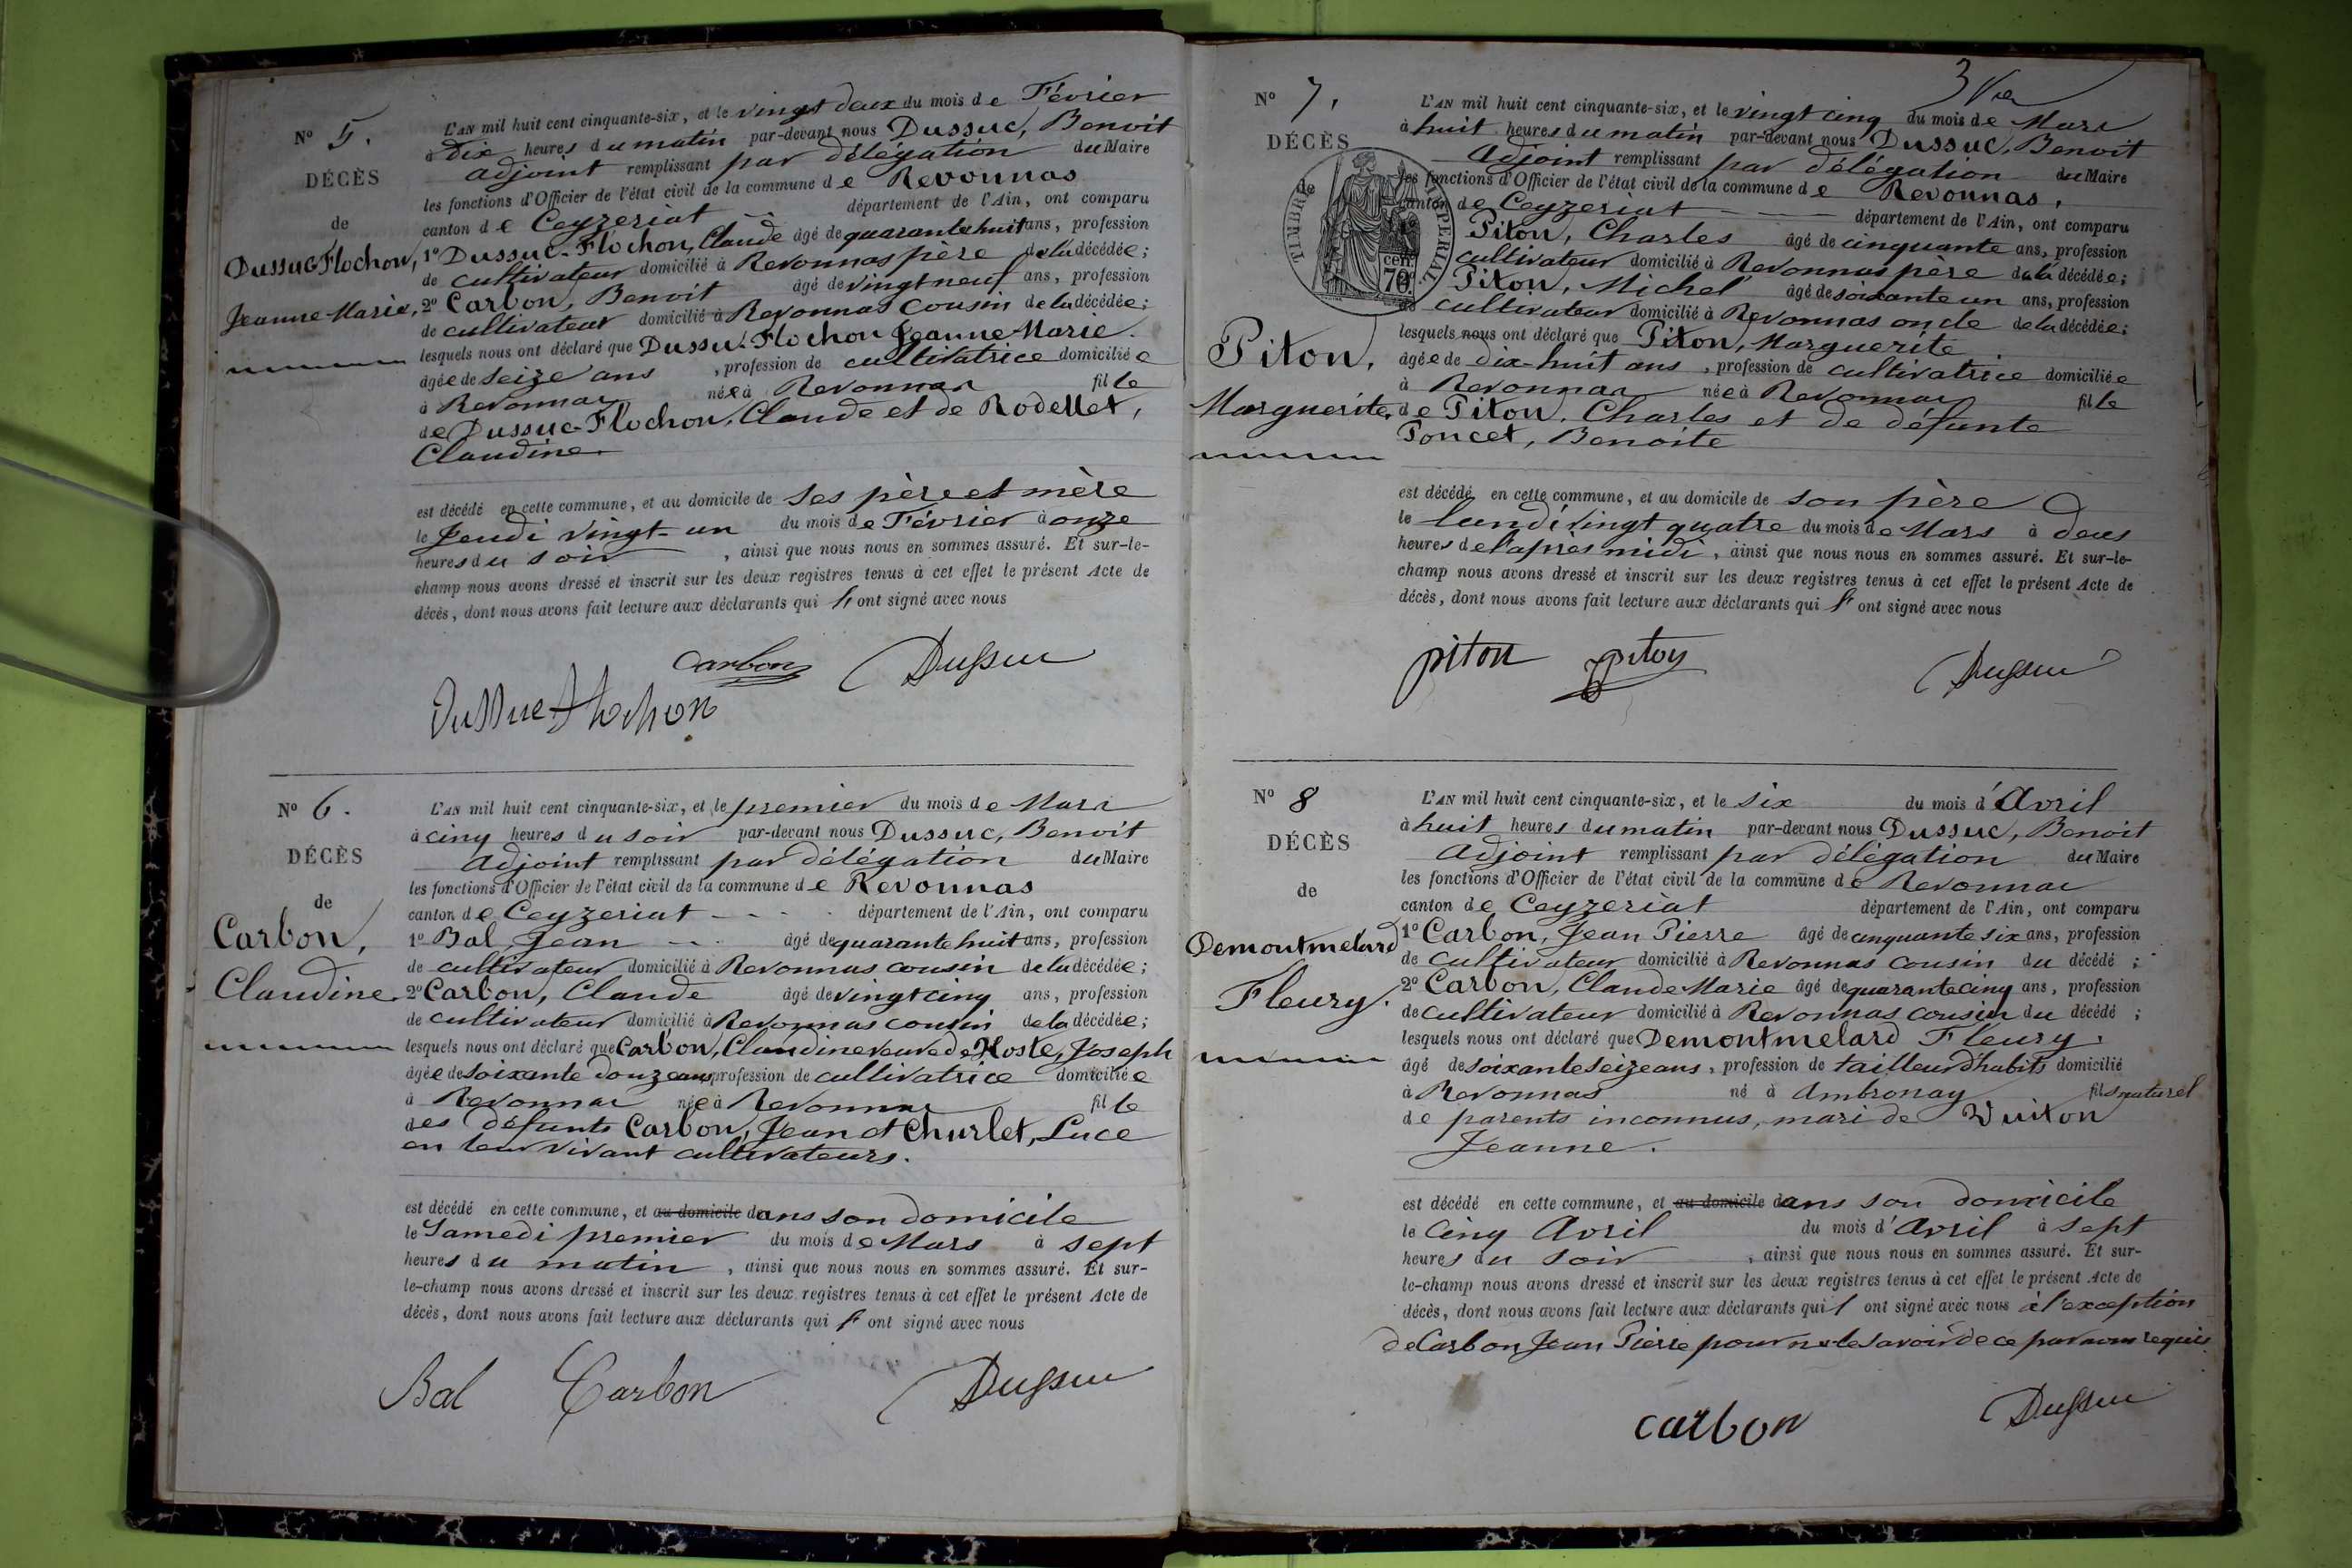 N° 5.
DÉCÈS
de
Dussuc-Flochon,
Jeanne-Marie,
L'AN mil huit cent cinquante-six, et le vingt deux du mois de Février
à Dix heures du matin par-devant nous Dussuc, Benoit
adjoint remplissant par délégation du Maire
les fonctions d'Officier de l'état civil de la commune de Revonnas
canton de Ceyzeriat département de l'Ain, ont comparu
1° Dussuc-Flochon, Claude âgé de quarante huit ans, profession
de cultivateur domicilié à Revonnas père de la décédée;
2° Carbon, Benoit âgé de vingt neuf ans, profession
de cultivateur domicilié à Revonnas cousin de la décédée;
lesquels nous ont déclaré que Dussuc-Flochon Jeanne-Marie
âgée de seize ans, profession de cultivatrice domiciliée
à Revonnas née à Revonnas fille
de Dussuc-Flochon, Claude et de Rodellet,
Claudine.
est décédé en cette commune, et au domicile de ses père et mère
le Jeudi vingt-un du mois de Février à onze
heures du soir, ainsi que nous nous en sommes assuré. Et sur-le-
champ nous avons dressé et inscrit sur les deux registres tenus à cet effet le présent Acte de
décès, dont nous avons fait lecture aux déclarants qui ont signé avec nous
Carbon Dussuc
Dussuc Flochon
N° 6.
DÉCÈS
de
Carbon,
Claudine
L'AN mil huit cent cinquante-six, et le premier du mois de Mars
à cinq heures du soir par-devant nous Dussuc, Benoit
Adjoint remplissant par délégation du Maire
les fonctions d'Officier de l'état civil de la commune de Revonnas
canton de Ceyzeriat département de l'Ain, ont comparu
1° Bal, Jean âgé de quarante huit ans, profession
de cultivateur domicilié à Revonnas cousin de la décédée;
2° Carbon, Claude âgé de vingt cinq ans, profession
de cultivateur domicilié à Revonnas cousin de la décédée;
lesquels nous ont déclaré que Carbon, Claudine veuve de Hoste, Joseph
âgée de soixante douze ans profession de cultivatrice domiciliée
à Revonnas née à Revonnas fille
des défunts Carbon, Jean et Churlet, Luce
en leur vivant cultivateurs.
est décédé en cette commune, et au domicile dans son domicile
le Samedi premier du mois de Mars à sept
heures du matin, ainsi que nous nous en sommes assuré. Et sur-
le-champ nous avons dressé et inscrit sur les deux registres tenus à cet effet le présent Acte de
décès, dont nous avons fait lecture aux déclarants qui ont signé avec nous
Bal Carbon Dussuc
3
N° 7,
DÉCÈS
de
TIMBRE IMPÉRIAL
70 cen.
Piton,
Marguerite,
L'AN mil huit cent cinquante-six, et le vingt cinq du mois de Mars
à huit heures du matin par-devant nous Dussuc, Benoit
Adjoint remplissant par délégation du Maire
les fonctions d'Officier de l'état civil de la commune de Revonnas,
canton de Ceyzeriat département de l'Ain, ont comparu
Piton, Charles âgé de cinquante ans, profession
cultivateur domicilié à Revonnas père de la décédée;
Piton, Michel âgé de soixante un ans, profession
de cultivateur domicilié à Revonnas oncle de la décédée;
lesquels nous ont déclaré que Piton, Marguerite
âgée de dix-huit ans, profession de cultivatrice domiciliée
à Revonnas née à Revonnas fille
de Piton, Charles et de défunte
Poncet, Benoite
est décédé en cette commune, et au domicile de son père
le lundi vingt quatre du mois de Mars à deux
heures de l'après midi, ainsi que nous nous en sommes assuré. Et sur-le-
champ nous avons dressé et inscrit sur les deux registres tenus à cet effet le présent Acte de
décès, dont nous avons fait lecture aux déclarants qui ont signé avec nous
piton piton Dussuc
N° 8
DÉCÈS
de
Demontmelard
Fleury.
L'AN mil huit cent cinquante-six, et le six du mois d'Avril
à huit heures du matin par-devant nous Dussuc, Benoit
Adjoint remplissant par délégation du Maire
les fonctions d'Officier de l'état civil de la commune de Revonnas
canton de Ceyzeriat département de l'Ain, ont comparu
1° Carbon, Jean Pierre âgé de cinquante six ans, profession
de cultivateur domicilié à Revonnas cousin du décédé;
2° Carbon, Claude Marie âgé de quarante cinq ans, profession
de cultivateur domicilié à Revonnas cousin du décédé;
lesquels nous ont déclaré que Demontmelard Fleury.
âgé de soixante seize ans, profession de tailleur d'habits domicilié
à Revonnas né à Ambronay fils naturel
de parents inconnus, mari de Vuiton
Jeanne.
est décédé en cette commune, et au domicile dans son domicile
le cinq Avril du mois d'Avril à sept
heures du soir, ainsi que nous nous en sommes assuré. Et sur-
le-champ nous avons dressé et inscrit sur les deux registres tenus à cet effet le présent Acte de
décès, dont nous avons fait lecture aux déclarants qui ont signé avec nous à l'exception
de Carbon Jean Pierre pour ne le savoir de ce par nous requis
carbon Dussuc